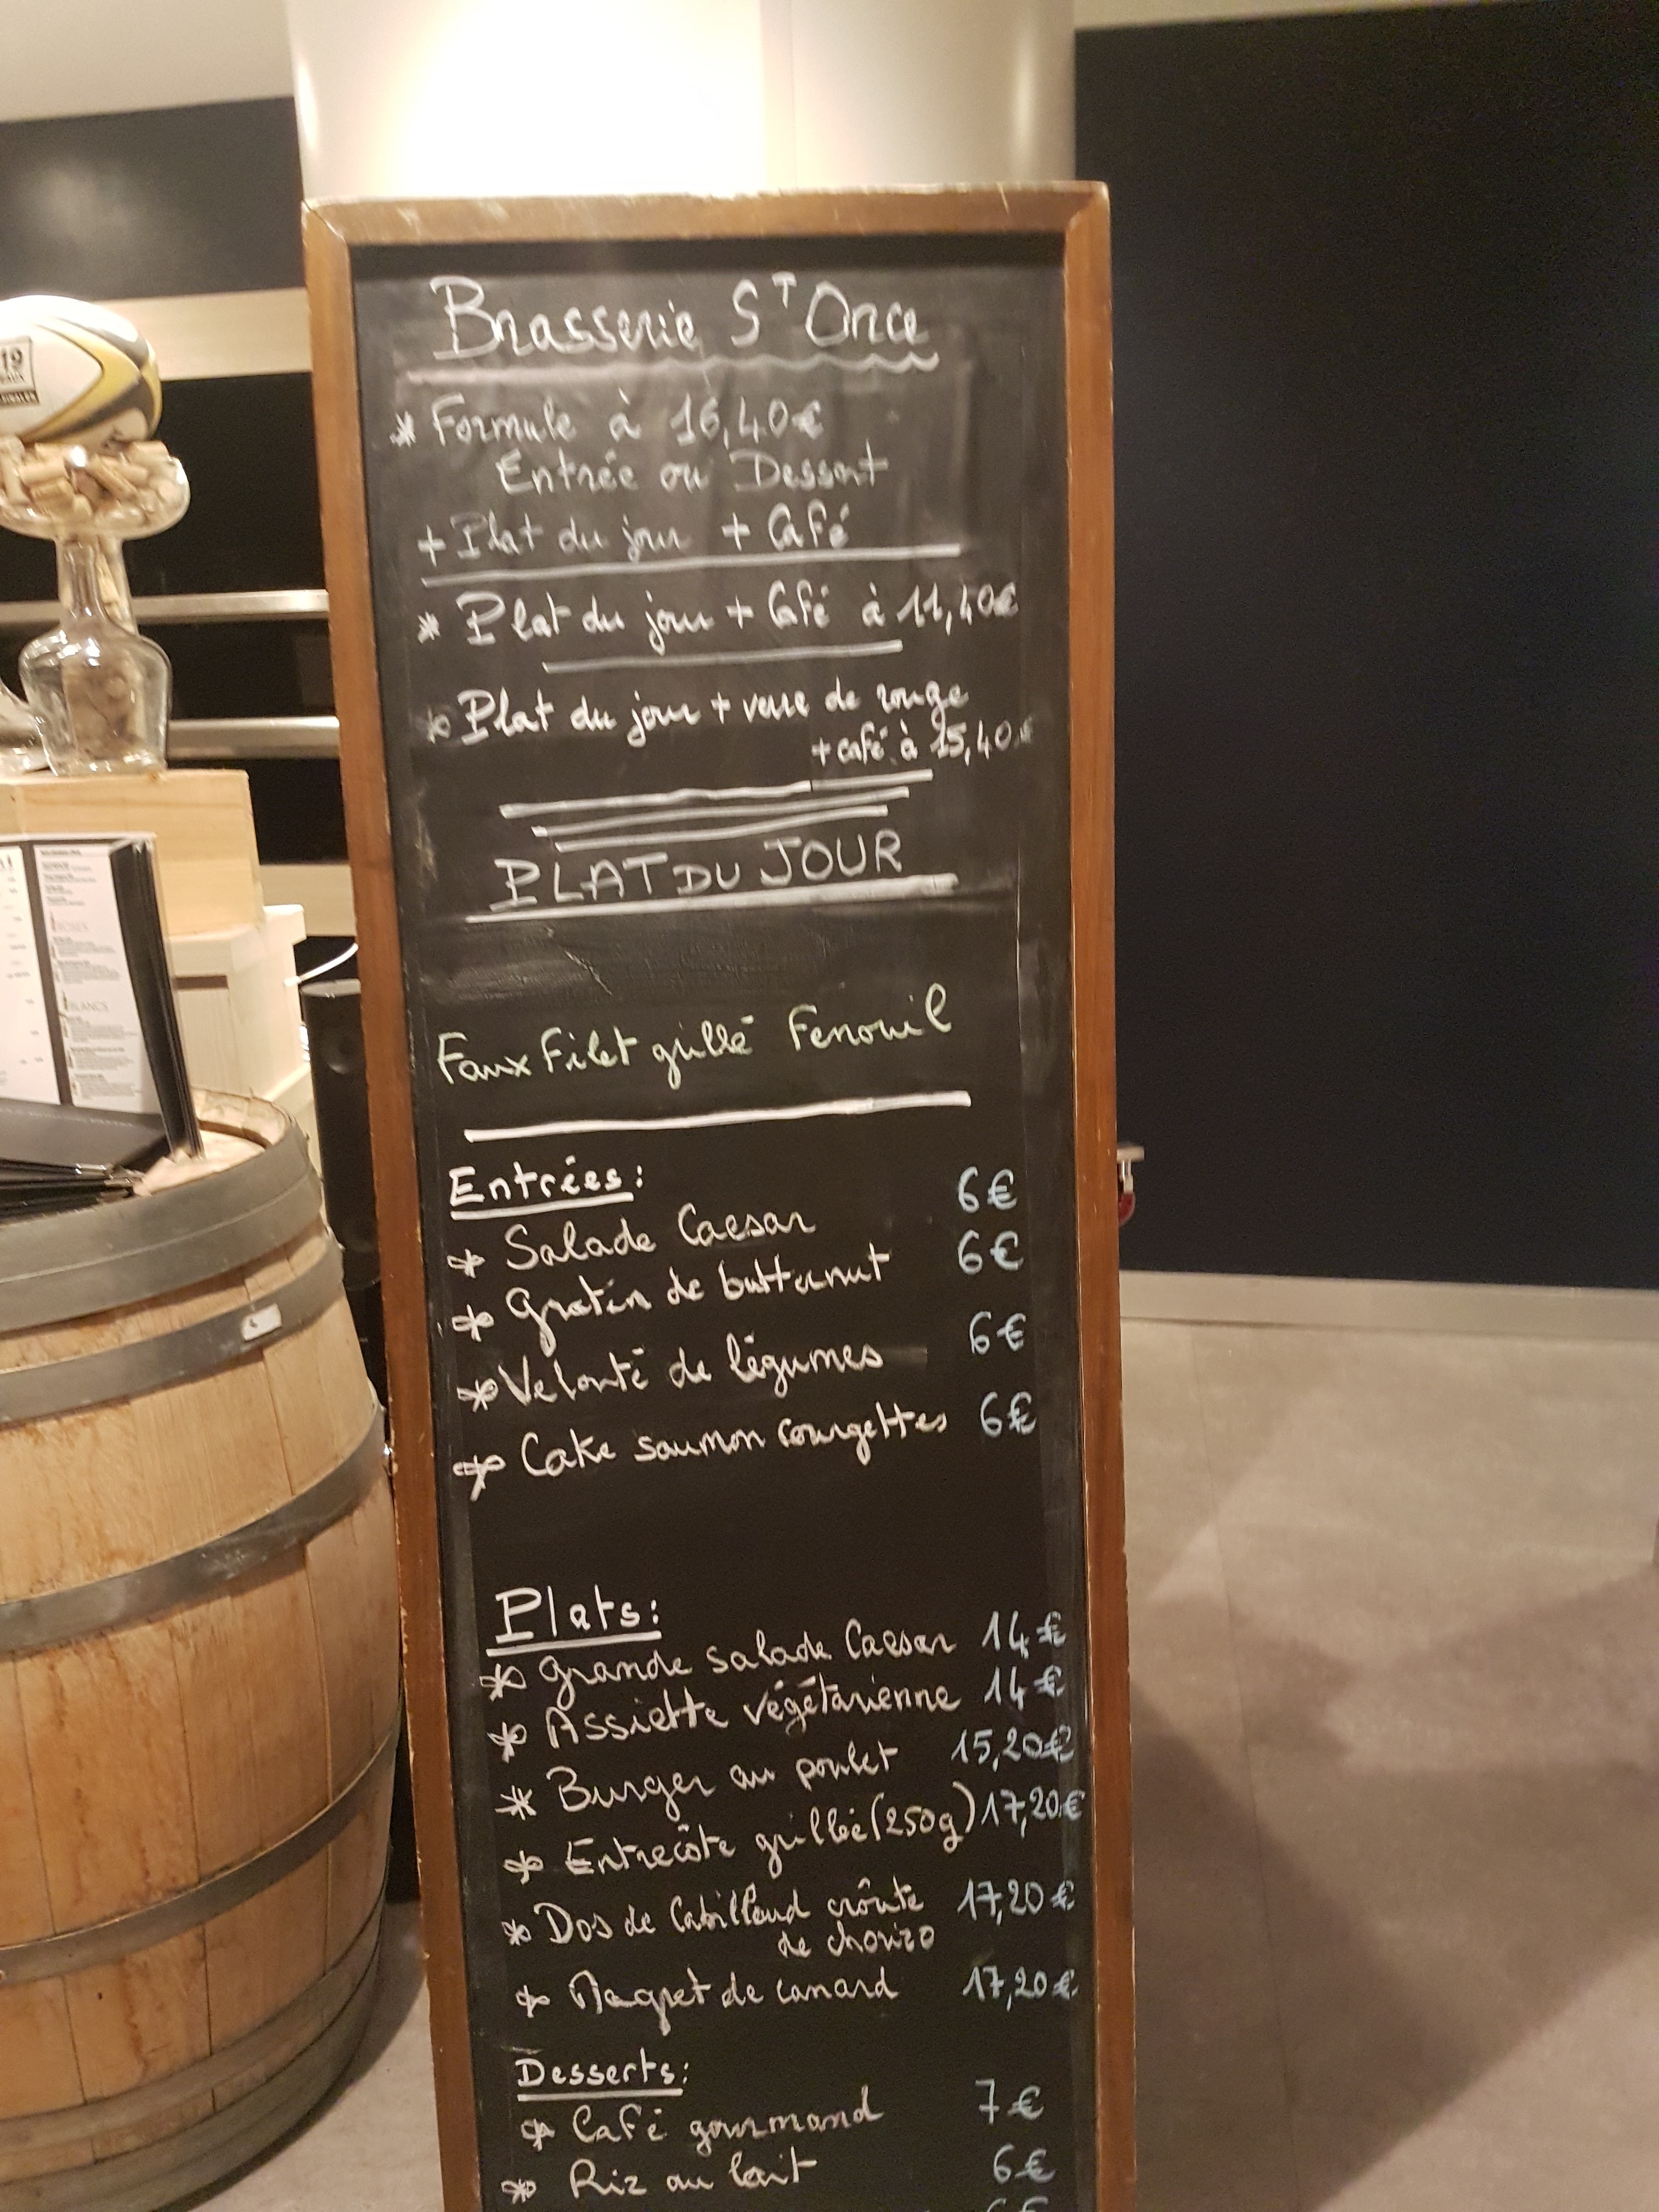 Brasserie S^T Once
* Formule à 16,40€
Entrée ou Dessert
+ Plat du jour + Café
* Plat du jour + Café à 11,40€
* Plat du jour + verre de rouge
+ café à 15,40€
PLAT DU JOUR
Faux Filet grillé Fenouil
Entrées:
* Salade Caesar 6€
* Gratin de butternut 6€
* Velouté de légumes 6€
* Cake saumon courgettes 6€
Plats:
* Grande salade Caesar 14€
* Assiette végétarienne 14€
* Burger au poulet 15,20€
* Entrecôte grillée (250g) 17,20€
* Dos de Cabillaud croûte 17,20€
de chorizo
* Magret de canard 17,20€
Desserts:
* Café gourmand 7€
* Riz au lait 6€
19
BLANCS